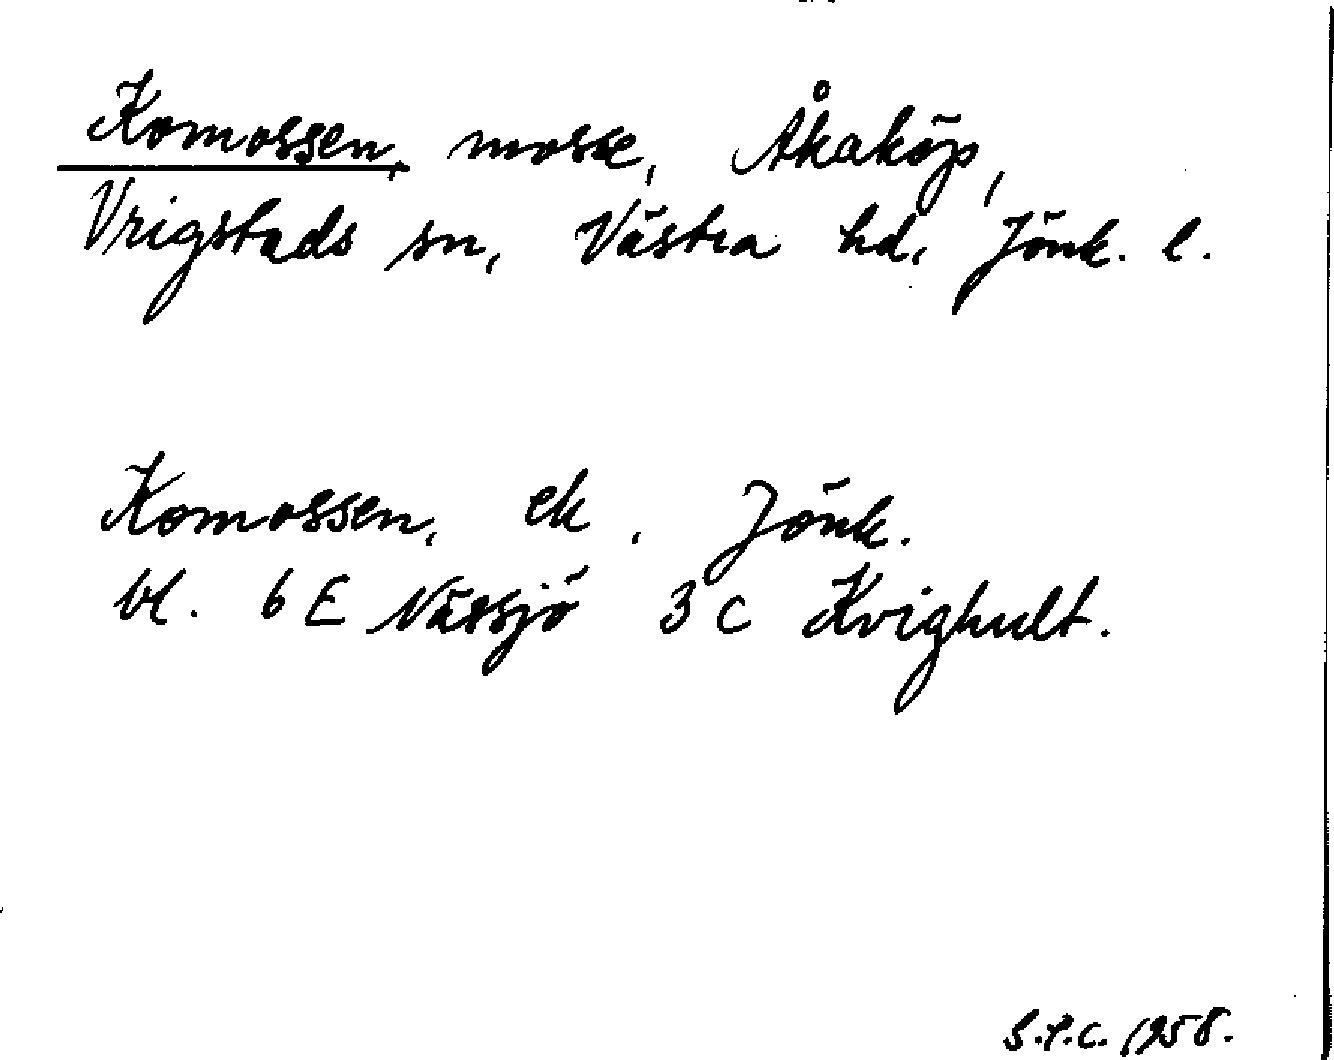 Komossen, mosse, Åkaköp,
Vrigstads sn, Västra hd. Jönk. l.
Komossen, ek, Jönk.
bl. 6 E Nässjö 3 C Kvighult.
S.P.C. 1958.